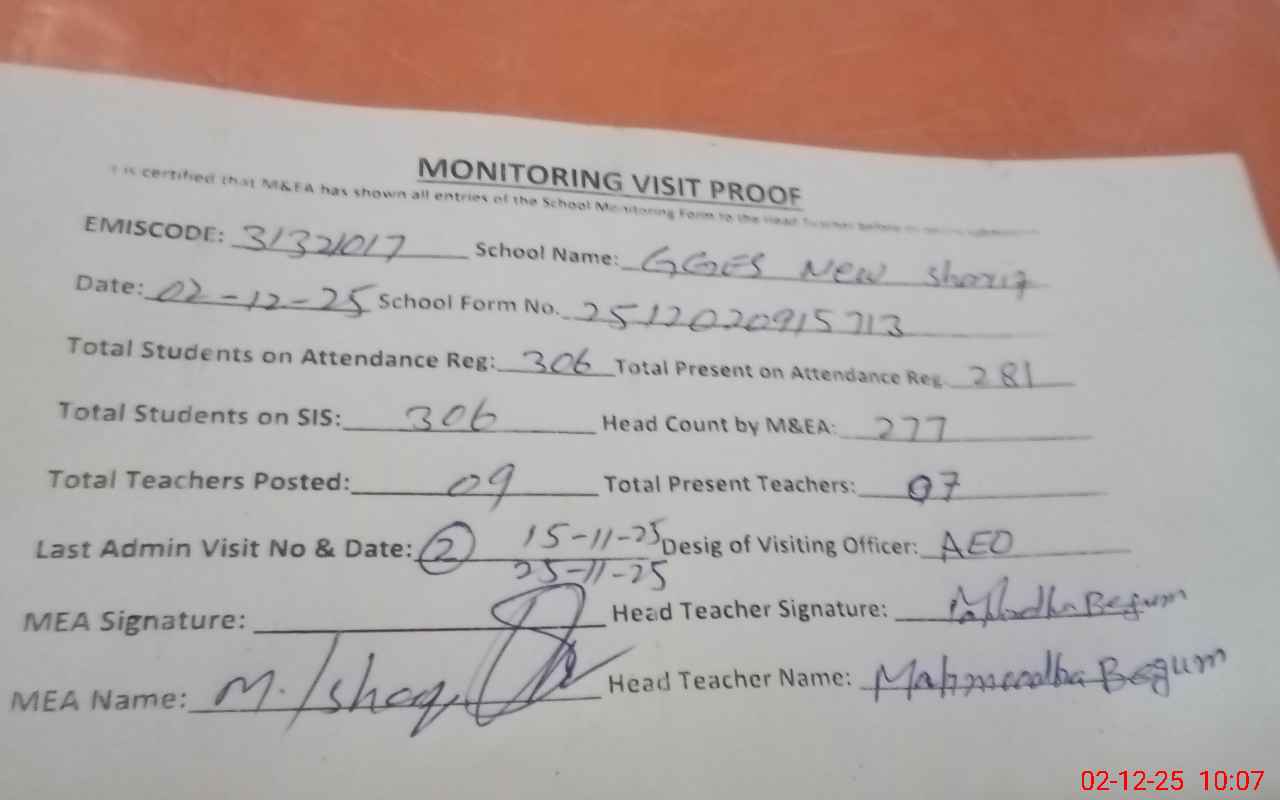 MONITORING VISIT PROOF
is certified that M&EA has shown all entries of the School Monitoring Form to the Head Teacher before
EMISCODE: 31321017 School Name: GGES New Sharif
Date: 02-12-25 School Form No. 2512020915713
Total Students on Attendance Reg: 306 Total Present on Attendance Reg. 281
Total Students on SIS: 306 Head Count by M&EA: 277
Total Teachers Posted: 09 Total Present Teachers: 07
Last Admin Visit No & Date: 2 15-11-25 Desig of Visiting Officer: AEO
25-11-25
MEA Signature: Head Teacher Signature: Begum
MEA Name: M. Ishaq Head Teacher Name: Mahmoodba Begum
02-12-25 10:07